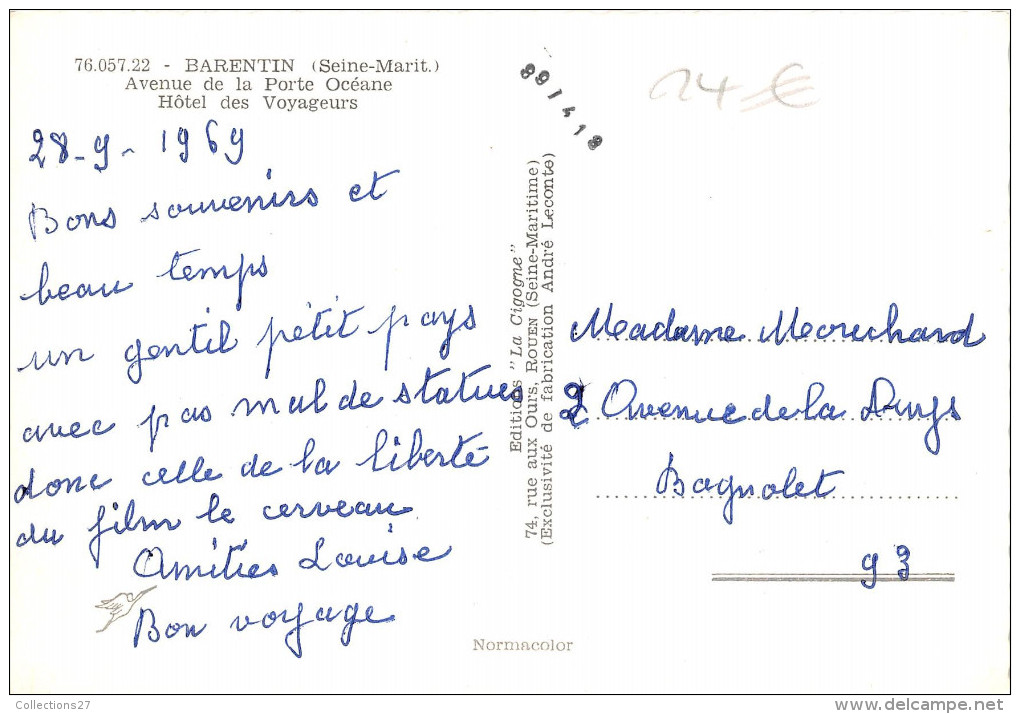 76.057.22 - BARENTIN (Seine-Marit.)
Avenue de la Porte Océane
Hôtel des Voyageurs
28-9-1969
Bons souvenirs et
beau temps
un gentil petit pays
avec pas mal de statues
donc celle de la liberté
du film le cerveau
Amitiés Louise
Bon voyage
Editions "La Cigogne"
74, rue aux Ours, ROUEN (Seine-Maritime)
(Exclusivité de fabrication André Leconte)
991418
24 €
Madame
2 Avenue de la Dhuys
Bagnolet
93
Normacolor
Collections27
delcampe.net